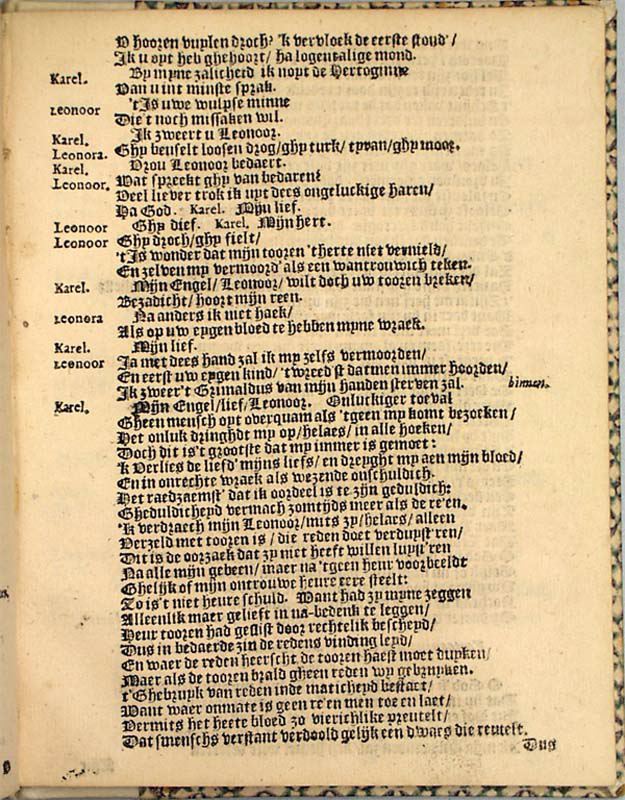 O hooren vuylen droch? 'k vervloek de eerste stond/
Ik u oyt heb ghehoort/ ha logentalige mond.
Karel. By myne zalicheyd ik noyt de Hertoginne
Van u int minste sprak.
Leonoor 't Is uwe wulpse minne
Die 't noch missaken wil.
Karel. Ik zweert u Leonoor.
Leonora. Ghy beuselt loosen drog/ghy turk/ tyran/ghy moor.
Karel. Vrou Leonoor bedaert.
Leonoor. Wat spreekt ghy van bedaren?
Veel liever trok ik uyt dees ongeluckige haren/
Ha God. Karel. Mijn lief.
Leonoor Ghy dief. Karel. Mijn hert.
Leonoor Ghy droch/ghy fielt/
't Is wonder dat mijn tooren 't herte niet vernield/
En zelven my vermoord als een wantrouwich teken.
Karel. Mijn Engel/ Leonoor/ wilt doch uw tooren breken/
Bezadicht/ hoort mijn reen.
Leonora Na anders ik niet haek/
Als op uw eygen bloed te hebben myne wraek.
Karel. Mijn lief.
Leonoor Ja met dees hand zal ik my zelfs vermoorden/
En eerst uw eygen kind/ 'twreed'st datmen immer hoorden/
Ik zweer't Grimaldus van mijn handen sterven zal. binnen.
Karel. Mijn Engel/lief/Leonoor. Onluckiger toeval
Gheen mensch oyt overquam als 'tgeen my komt bezoeken/
Het onluk dringhdt my op/helaes/ in alle hoeken/
Doch dit is't grootste dat my immer is gemoet:
'k Verlies de liefd' mijns liefs/ en dreyght my aen mijn bloed/
En in onrechte wraek als wezende onschuldich.
Het raedzaemst' dat ik oordeel is te zijn geduldich:
Gheduldicheyd vermach zomtijds meer als de re'en.
'k Verdraech mijn Leonoor/mits zy/helaes/ alleen
Verzeld met tooren is/ die reden doet verduyst'ren/
Dit is de oorzaek dat zy niet heeft willen luyst'ren
Na alle mijn gebeen/ maer na 'tgeen heur voorbeeldt
Ghelijk of mijn ontrouwe heure eere steelt:
Zo is't niet heure schuld. Want had zy myne zeggen
Alleenlik maer gelieft in na-bedenk te leggen/
Heur tooren had gesist door rechtelik bescheyd/
Dus in bedaerde zin de redens vinding leyd/
En waer de reden heerscht de tooren haest moet duyken/
Maer als de tooren brald gheen reden wy gebruyken.
t'Ghebruyk van reden inde maticheyd bestaet/
Want waer onmate is geen re'en men toe en laet/
Vermits het heete bloed zo vierichlike preutelt/
Dat smenschs verstant verdoold gelijk een dwaes die reutelt.
Dus